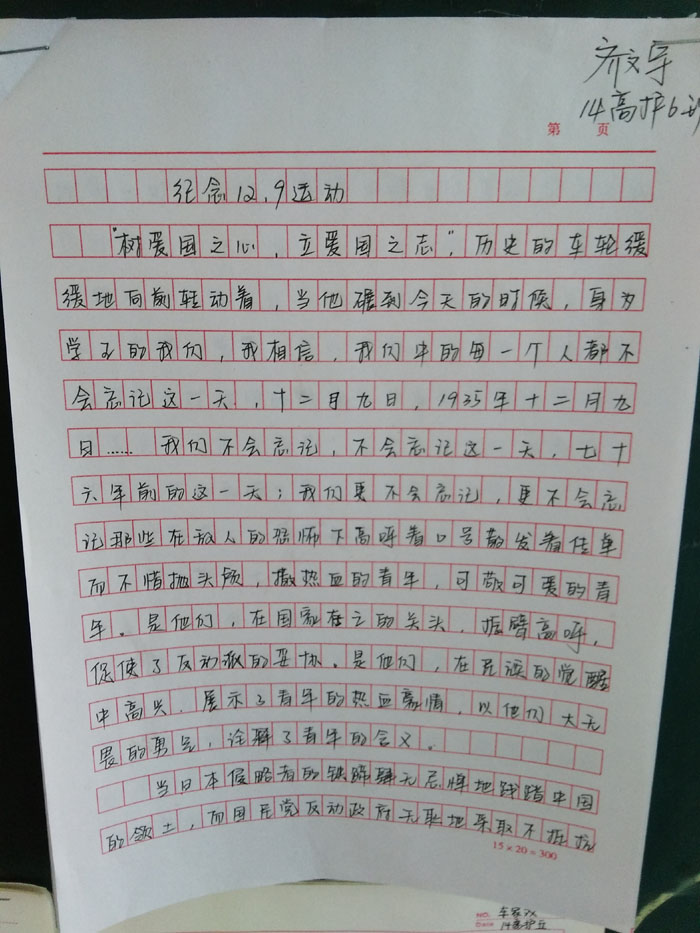 齐文宇
14高护6班
第 页
纪念12.9运动
"树爱国之心，立爱国之志"，历史的车轮缓
缓地向前转动着，当他碾到今天的时候，身为
学子的我们，我相信，我们中的每一个人都不
会忘记这一天，十二月九日，1935年十二月九
日……我们不会忘记，不会忘记这一天，七十
六年前的这一天；我们更不会忘记，更不会忘
记那些在敌人的 下高呼着口号散发着传单
而不惜抛头颅，撒热血的青年，可敬可爱的青
年。是他们，在国家存亡的关头，振臂高呼，
促使了反动派的妥协。是他们，在民族的觉醒
中高 ，展示了青年的热血豪情，以他们大无
畏的勇气，诠释了青年的含义。
当日本侵略者的铁蹄肆无忌惮地践踏中国
的领土，而国民党反动政府无耻地采取不抵抗
15×20=300
NO.
Date 14高护五